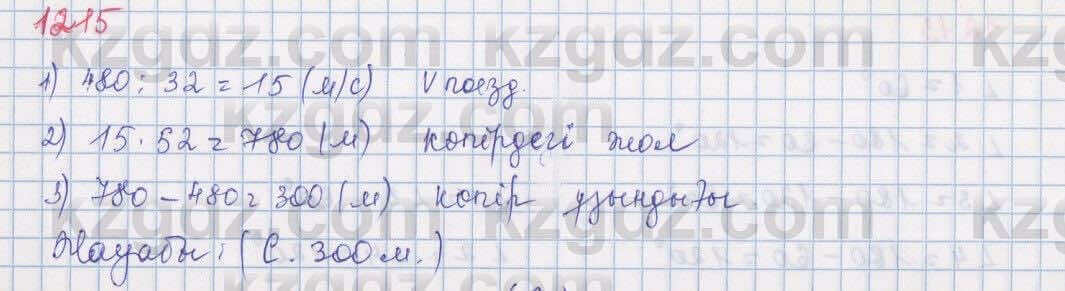 1215
kzgdz.com kzgdz.com kzgdz
1) 480 : 32 = 15 (м/с) V поезд.
2) 15 · 52 = 780 (м) көпірдегі жол
3) 780 - 480 = 300 (м) көпір ұзындығы
Жауабы: (С. 300 м.)